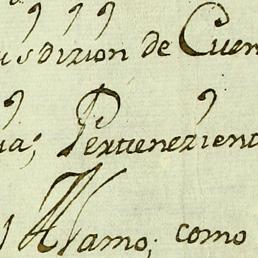 usdizion de Cuen
ua; Pertenezient
Alamo; como